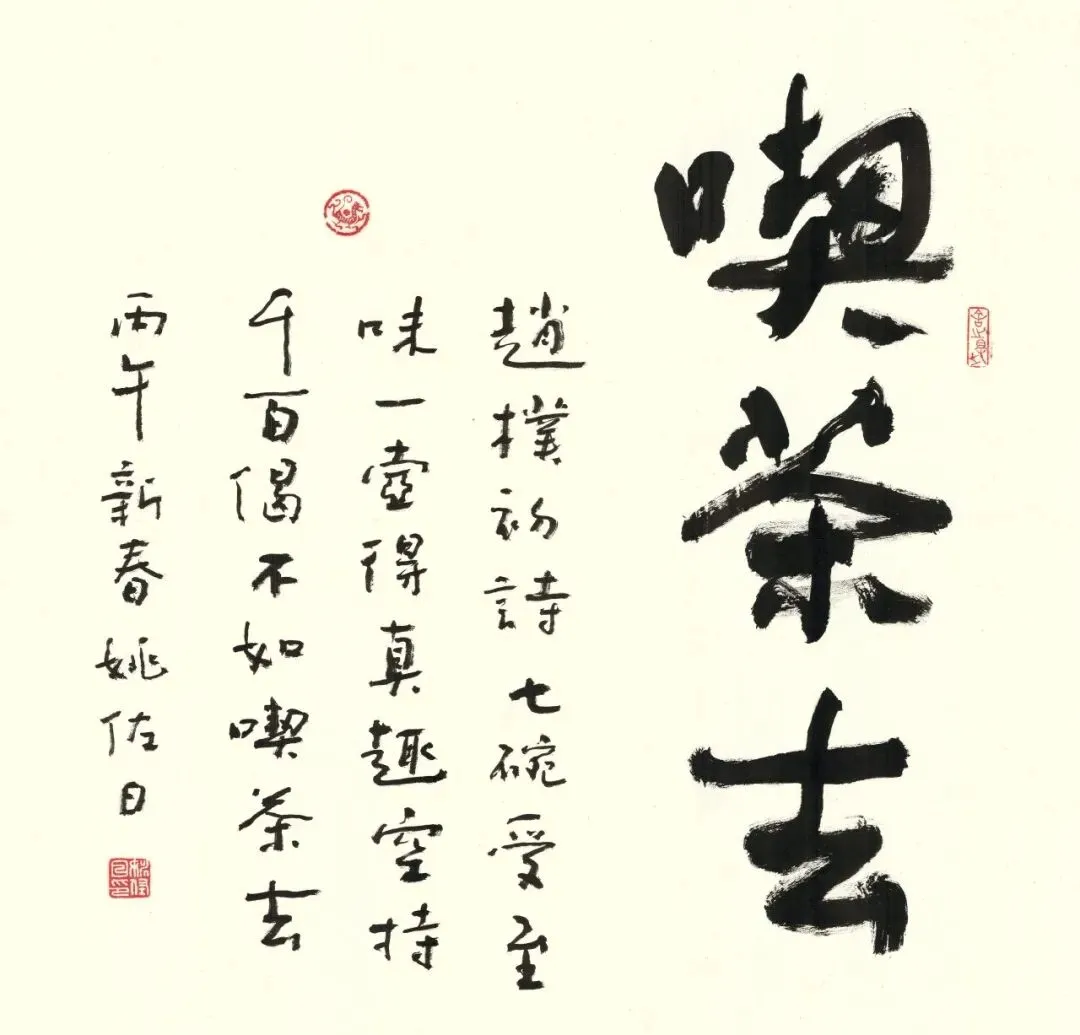 喫茶去
趙樸初詩七碗受至
味一壺得真趣空持
千百偈不如喫茶去
丙午新春姚佐日